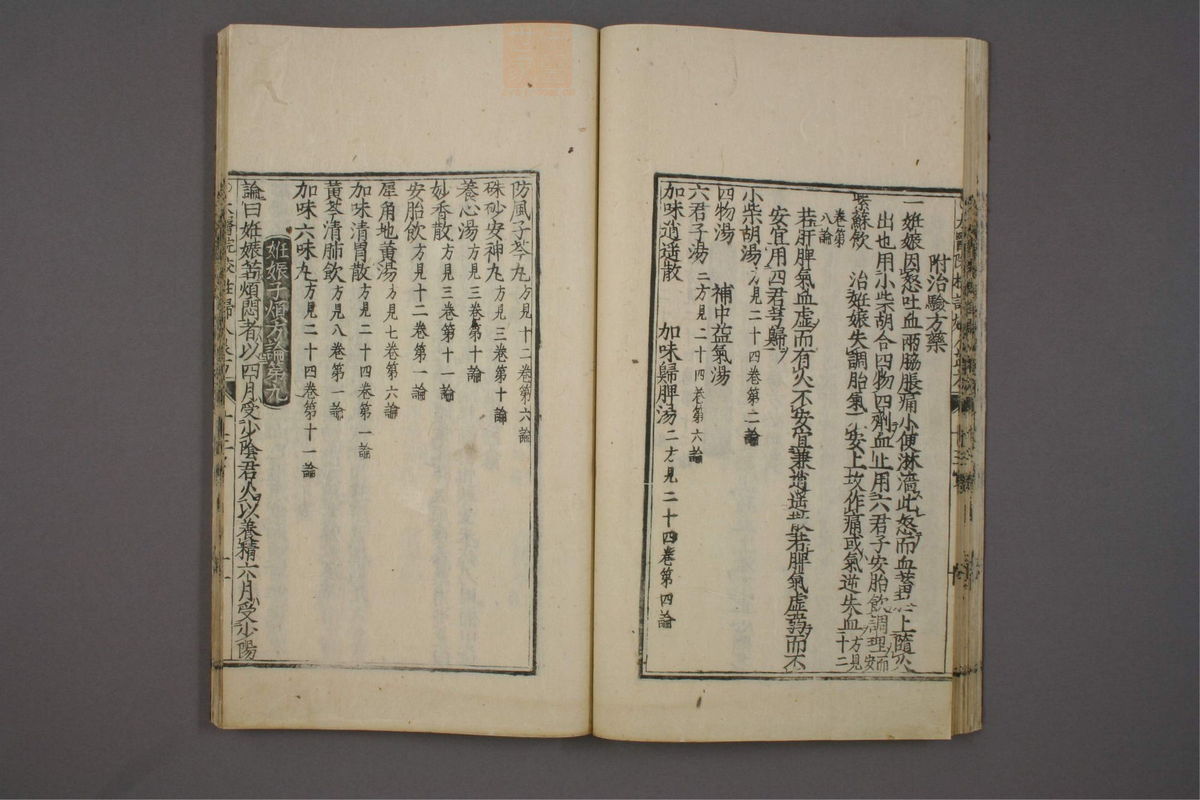 附治驗方藥
一妊娠因怒吐血兩脇脹痛小便淋澁此怒而血蓄於上隨火
出也用小柴胡合四物四劑血止用六君子安胎飲調理而安
紫蘇飲 治妊娠失調胎氣不安上攻作痛或氣逆失血方見十二
卷第八論
若肝脾氣血虛而有火不安宜兼逍遙散若脾氣虛弱而不
安宜用四君芎歸
小柴胡湯方見二十四卷第二論
四物湯 補中益氣湯
六君子湯三方見二十四卷第六論
加味逍遙散 加味歸脾湯二方見二十四卷第四論
防風子芩丸方見十二卷第六論
硃砂安神丸方見三卷第十論
養心湯方見三卷第十論
妙香散方見三卷第十一論
安胎飲方見十二卷第一論
犀角地黃湯方見七卷第六論
加味清胃散方見二十四卷第一論
黃芩清肺飲方見八卷第一論
加味六味丸方見二十四卷第十一論
妊娠子煩方論第九
論曰妊娠苦煩悶者以四月受少陰君火以養精六月受少陽